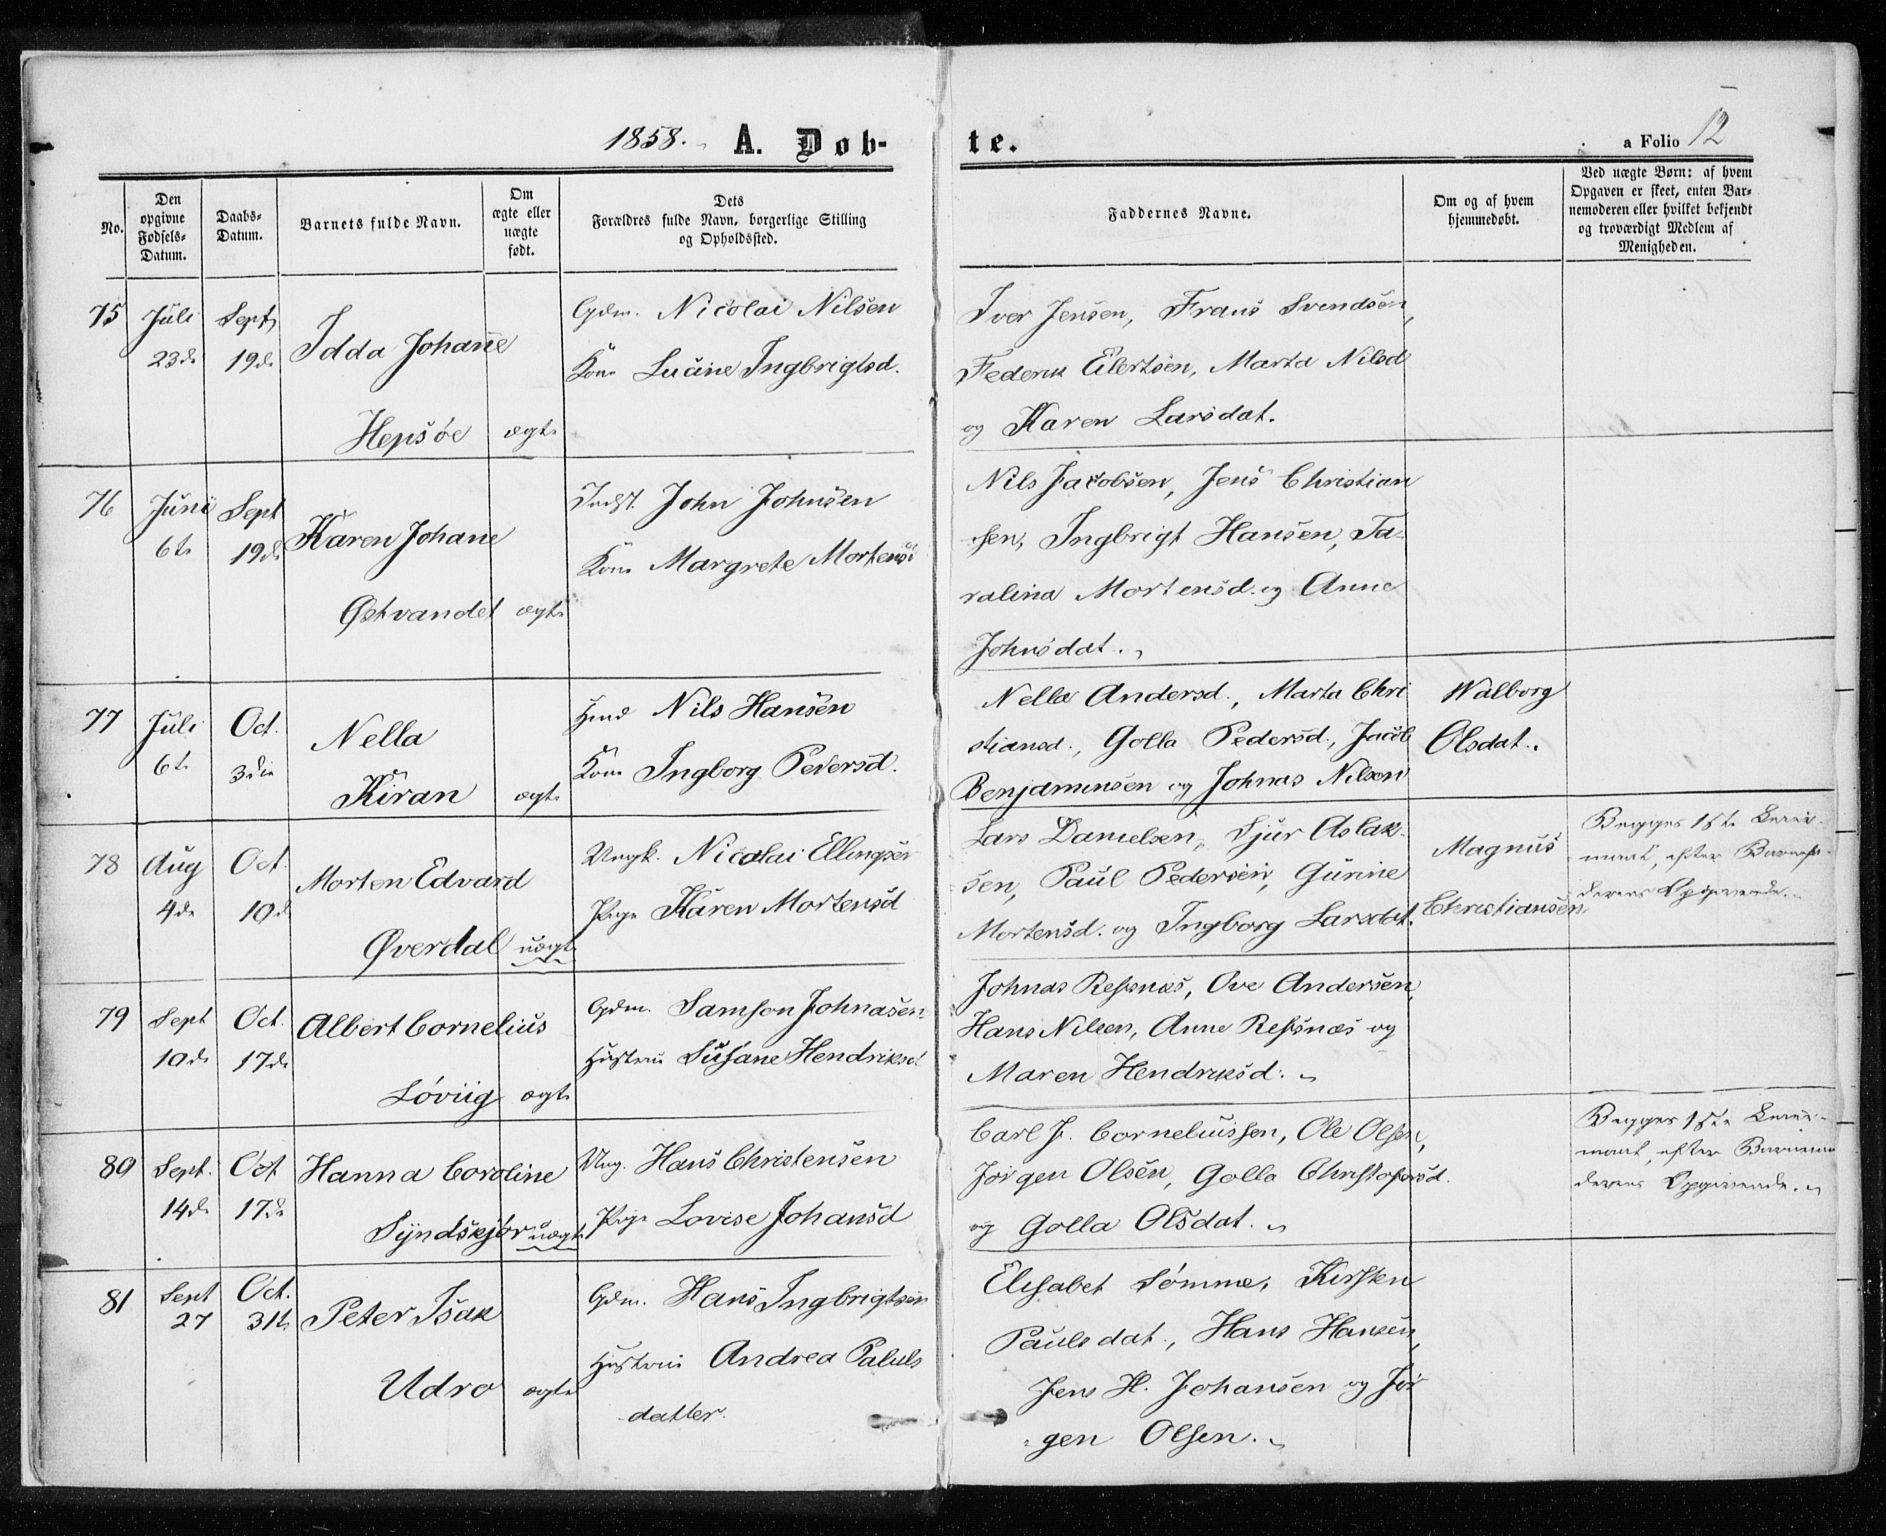 1858. A. Døb-
te.
a Folio 12
No.
Den
opgivne
Fødsels-
Datum.
Daabs-
Datum.
Barnets fulde Navn.
Om
ægte eller
uægte
født.
Dets
Forældres fulde Navn, borgerlige Stilling
og Opholdssted.
Faddernes Navne.
Om og af hvem
hjemmedøbt.
Ved uægte Børn: af hvem
Opgaven er skeet, enten Bar-
nemoderen eller hvilket bekjendt
og troværdigt Medlem af
Menigheden.
75
Juli
23de
Sept
19de
Idda Johane
Hepsøe
ægte
Gdm. Nicolai Nilsen
Kone Lucine Ingbrigtsd.
Iver Jensen, Frans Svendsen,
Federik Eilertsen, Marta Nilsd
og Karen Larsdat.
76
Juni
6te
Sept
19de
Karen Johane
Østvandet
ægte
Indst. John Johnsen
Kone Margrete Mortensd
Nils Jacobsen, Jens Christian
sen, Ingbrigt Hansen, Ta-
ralina Mortensd. og Anne
Johnsdat.
77
Juli
6te
Oct.
3die
Nella
Kiran
ægte
Nils Hansen
Kone Ingborg Pedersd.
Nella Andersd., Marta Chri
stiansd., Golla Pedersd., Jacob
Benjaminsen og Johnas Nilsen
Walborg
Olsdat.
78
Aug
4de
Oct.
10de
Morten Edvard
Øverdal
uægte
Ungk. Nicolai Ellingsen
Pige Karen Mortensd
Lars Danielsen, Sjur Aslak-
sen, Paul Pedersen, Gurine
Mortensd. og Ingborg Larsdat.
Magnus
Christiansen
Begges 1ste Leier-
maal, efter Barnefa-
derens Opgivende.
79
Sept
10de
Oct.
17de
Albert Cornelius
Løviig
ægte
Gdm. Samson Johnasen
Hustru Susane Hendriksd
Johnas Refsnæs, Ove Andersen,
Hans Nilsen, Anne Refsnæs og
Maren Hendriksd.
80
Sept.
14de
Oct
17de
Hanna Coroline
Syndskjør
uægte
Ung. Hans Christensen
Pige Lovise Johansd
Carl J. Corneliussen, Ole Olsen,
Jørgen Olsen, Golla Christofersd.
og Golla Olsdat.
Begges 1ste Leier-
maal, efter Barnemo
derens Opgivende.
81
Sept
27
Oct.
31te
Peter Isak
Udro
ægte
Gdm. Hans Ingbrigtsen
Hustru Andrea Paluls
datter.
Elisabet Sømme, Kirsten
Paulsdat., Hans Hansen,
Jens H. Johansen og Jør
gen Olsen.